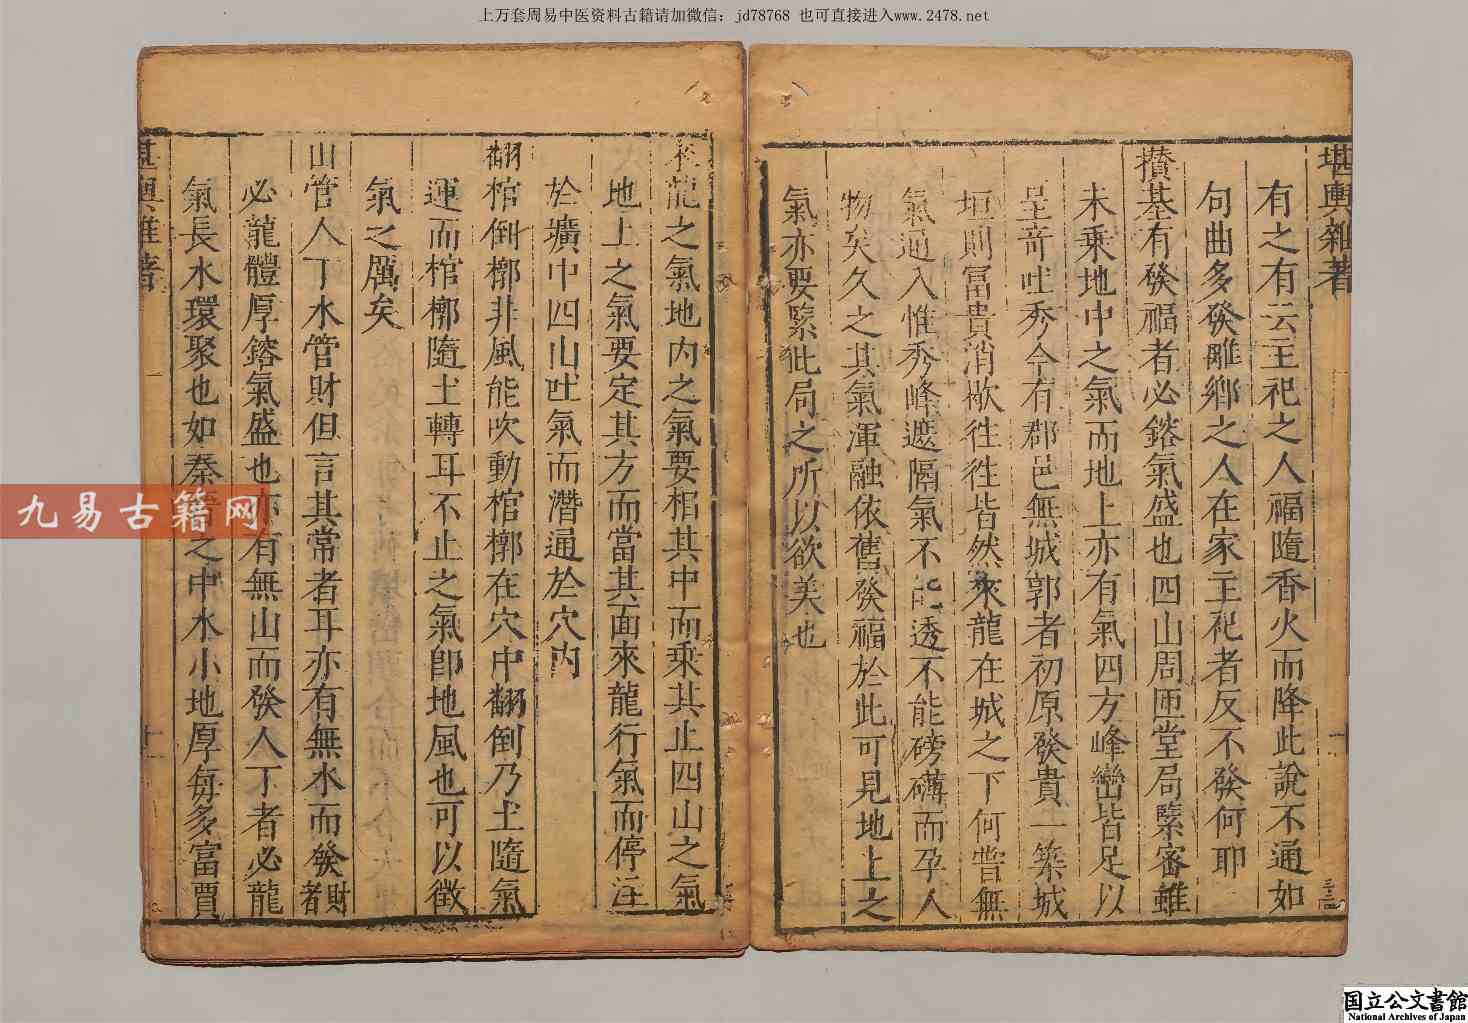 上万套周易中医资料古籍请加微信：jd78768 也可直接进入www.2478.net
堪輿雜著
有之有云主祀之人福隨香火而降此說不通如
句曲多發離鄉之人在家主祀者反不發何耶
攅基有發福者必鎔氣盛也四山周匝堂局緊審雖
未乘地中之氣而地上亦有氣四方峰巒皆足以
呈奇吐秀今有郡邑無城郭者初原發貴一築城
垣則冨貴消歇徃徃皆然來龍在城之下何甞無
氣通入惟秀峰遮隔氣不能透不能磅礴而孕人
物矣久之其氣渾融依舊發福於此可見地上之
氣亦要緊此局之所以欲美也
來龍之氣地内之氣要棺其中而乘其止四山之氣
地上之氣要定其方而當其面來龍行氣而停注
於壙中四山吐氣而潛通於穴内
翻棺倒槨非風能吹動棺槨在穴中翻倒乃土隨氣
運而棺槨隨土轉耳不止之氣卽地風也可以徴
氣之厲矣
山管人丁水管財但言其常者耳亦有無水而發財者
必龍體厚鎔氣盛也亦有無山而發人丁者必龍
氣長水環聚也如秦之中水小地厚每多富賈
堪輿雜著
九易古籍网
国立公文書館
National Archives of Japan